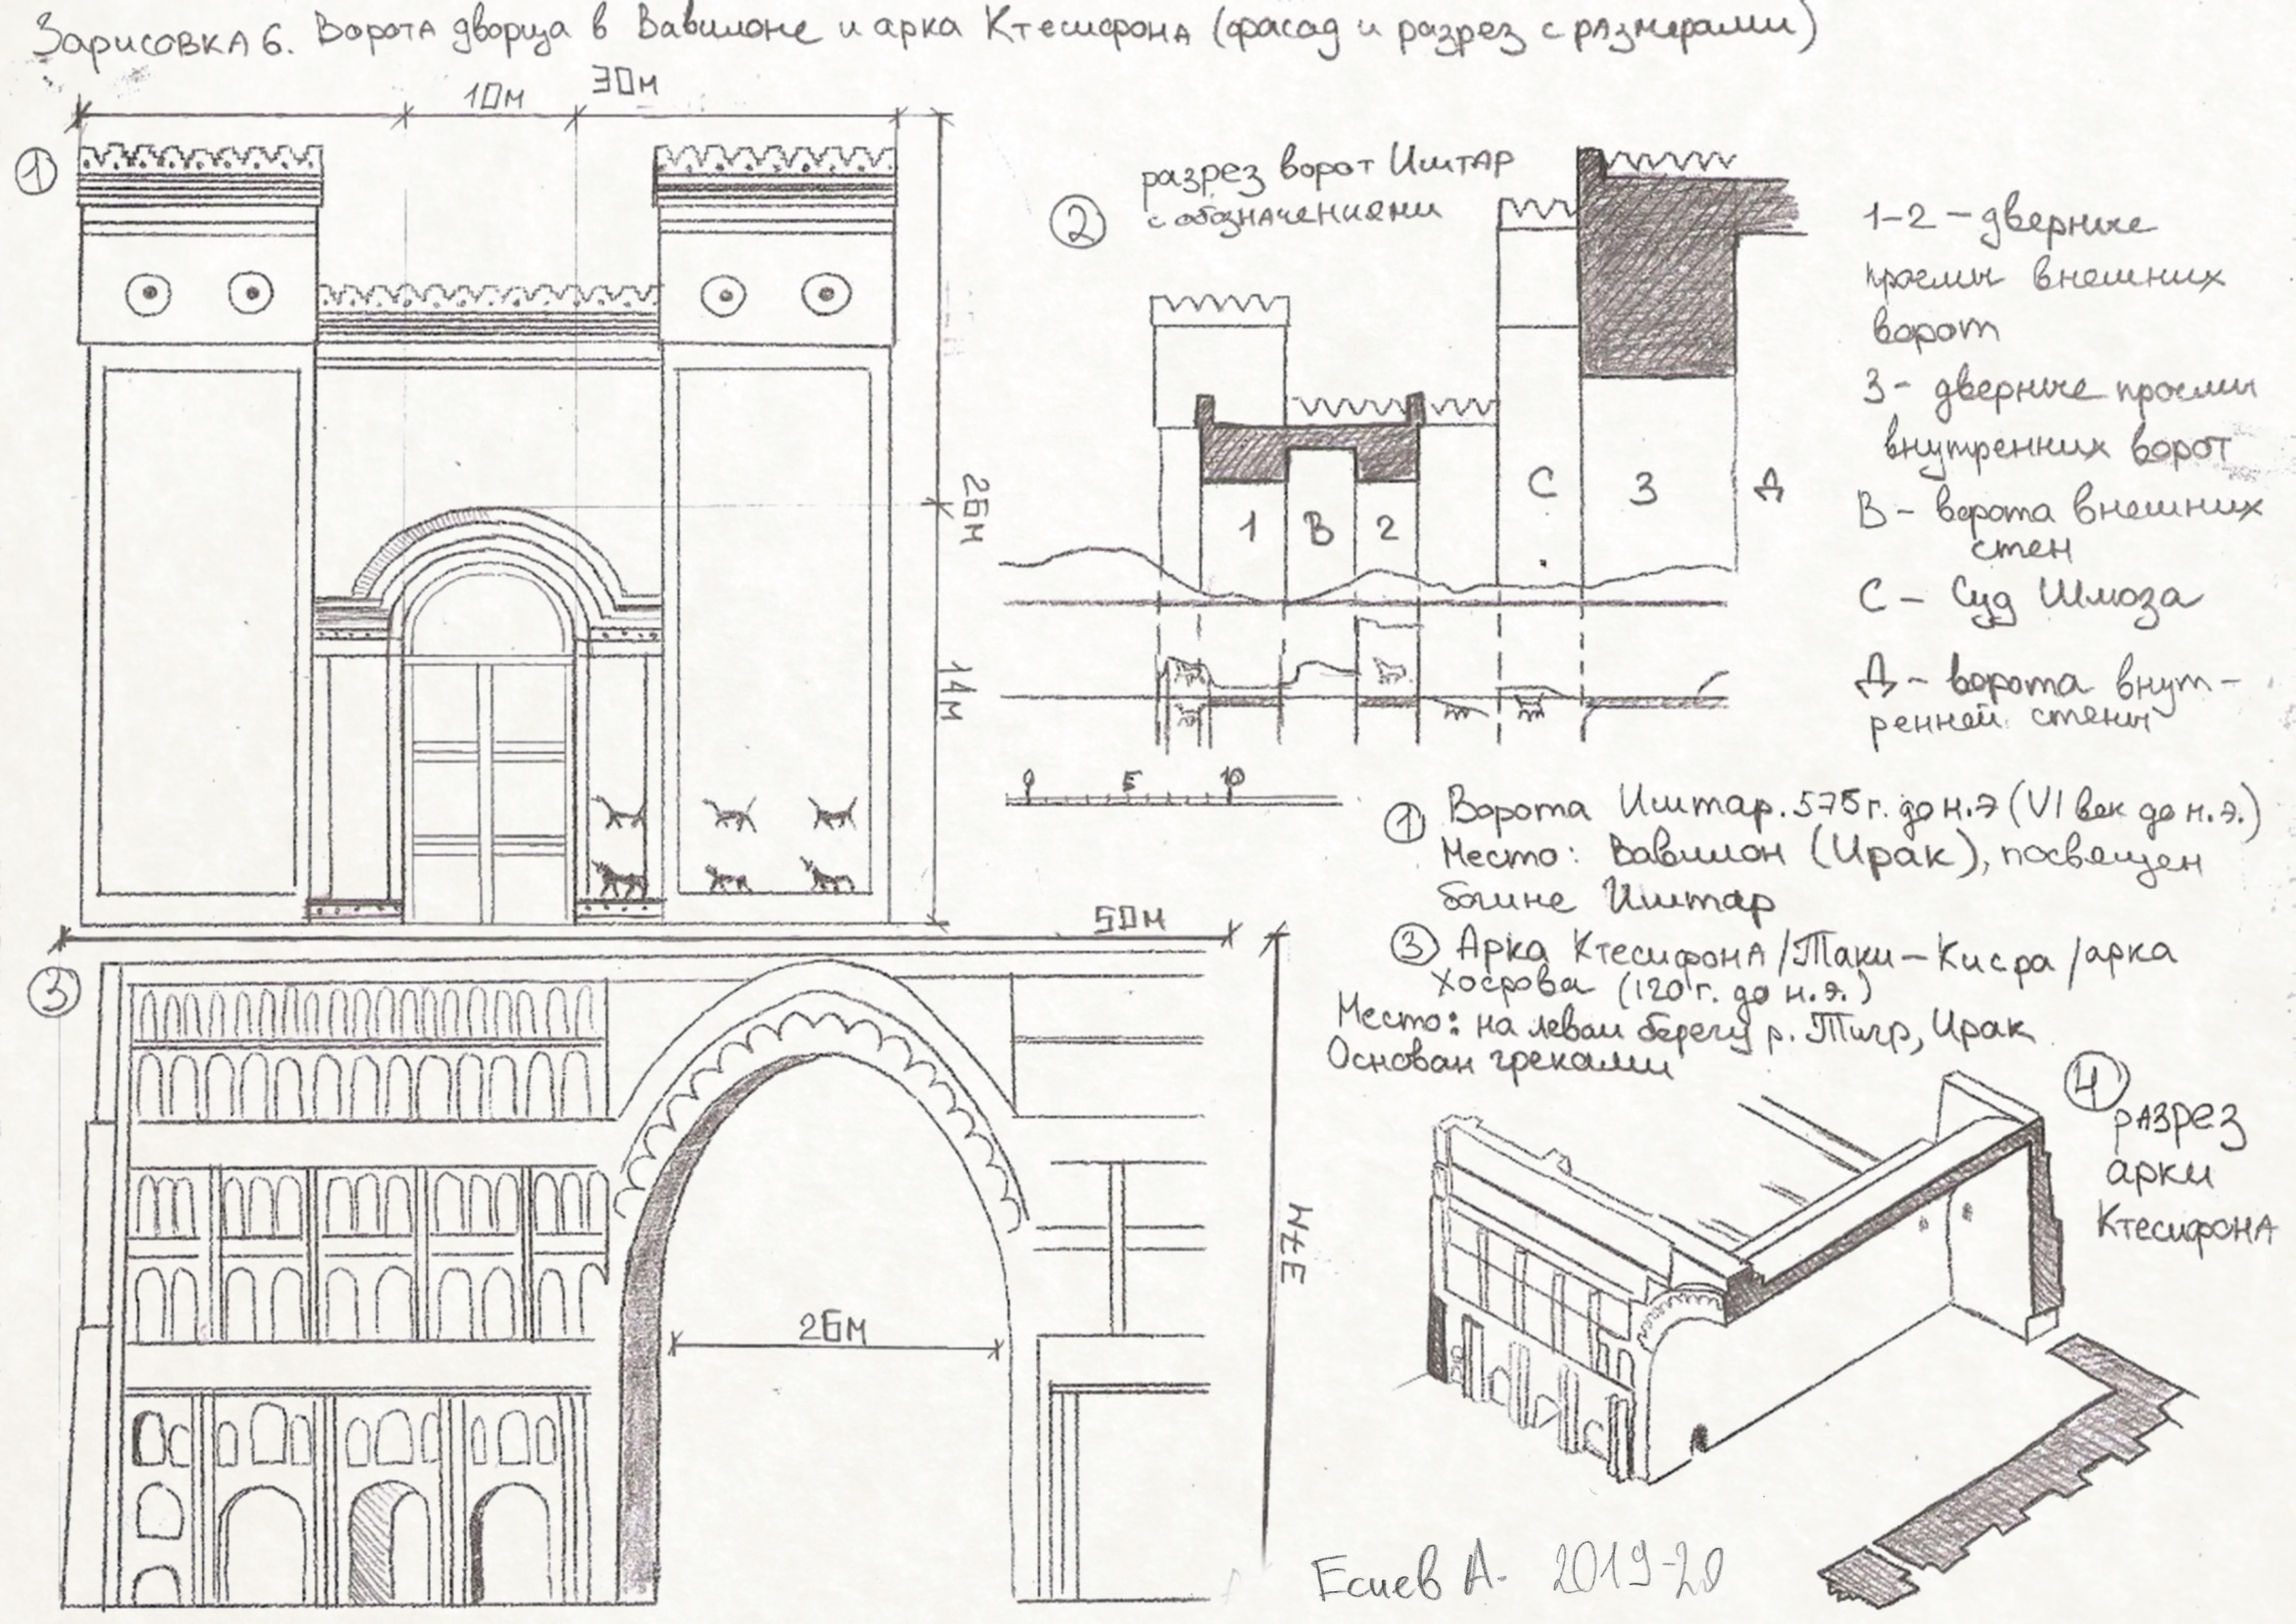 Зарисовка 6. Ворота дворца в Вавилоне и арка Ктесифона (фасад и разрез с размерами)
10м
30м
1
26м
14м
2
разрез ворот Иштар
с обозначениями
1
В
2
С
3
Д
0
5
10
1-2 - дверные
проемы внешних
ворот
3 - дверные проемы
внутренних ворот
В - ворота внешних
стен
С - Суд Шмоза
Д - ворота внут-
ренней стены
1 Ворота Иштар. 575 г. до н.э (VI век до н.э.)
Место: Вавилон (Ирак), посвящен
богине Иштар
3 Арка Ктесифона/Таки-Кисра/арка
Хосрова (120 г. до н.э.)
Место: на левом берегу р. Тигр, Ирак
Основан греками
3
50м
37м
26м
4
разрез
арки
Ктесифона
Есиев А. 2019-20